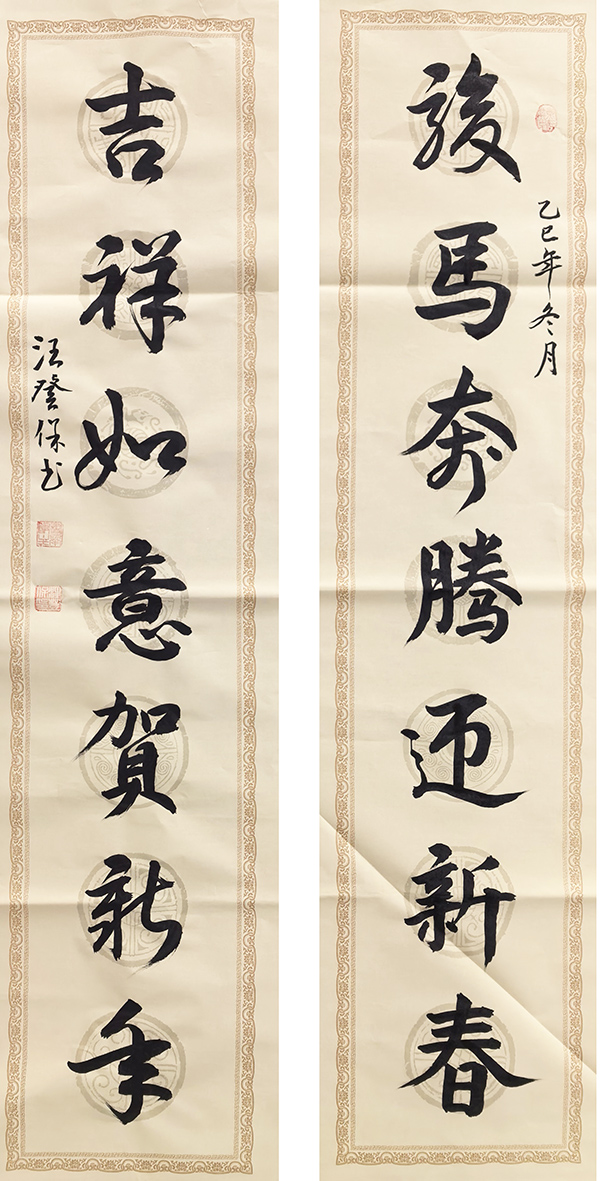 駿馬奔騰迎新春
乙巳年冬月
吉祥如意賀新年
汪登保书